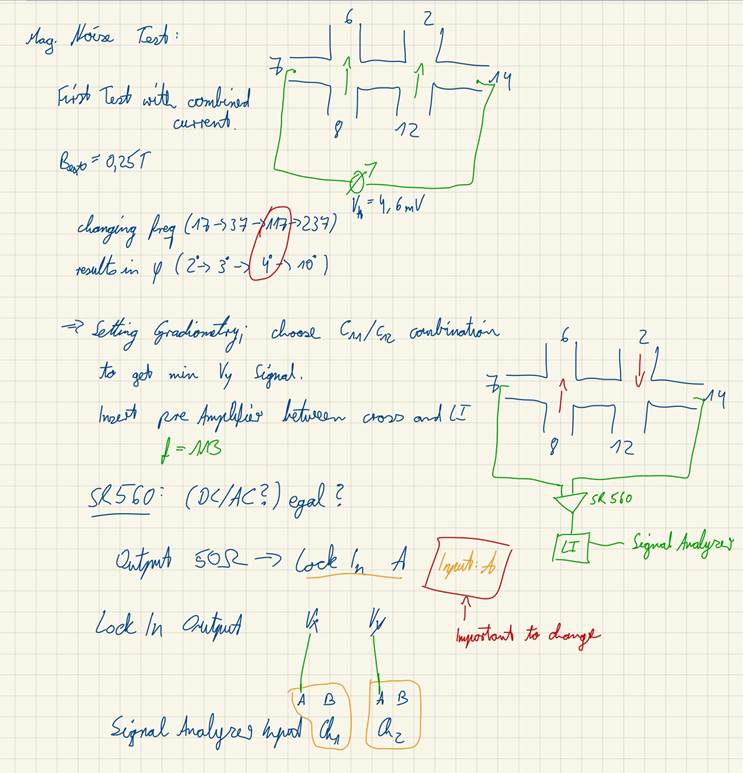 Mag. Noise Test:
6 2
7 14
8 12
First Test with combined
current.
Bext = 0,25T
Vx = 4,6mV
changing freq (17→37→117→237)
results in φ (2°→3°→4°→10°)
⇒ Setting Gradiometry; choose
combination
to get min Vy Signal.
Insert pre Amplifier between cross and LI
f = 113
6 2
7 14
8 12
SR560
LI
Signal Analyzer
SR560: (DC/AC?) egal?
Output 50Ω → Lock In A
Input: A
Important to change
Lock In Output Vx Vy
A B A B
Signal Analyzer Input Ch1 Ch2